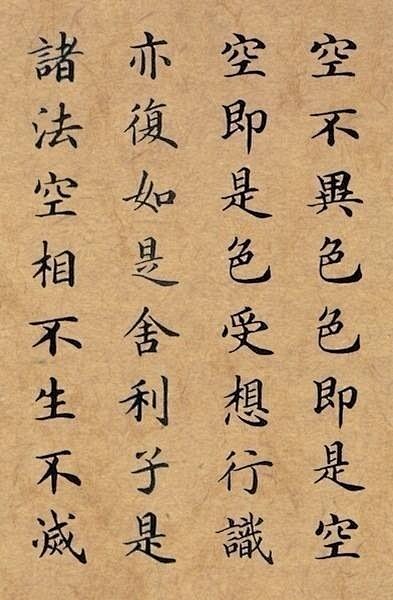 空不異色色即是空
空即是色受想行識
亦復如是舍利子是
諸法空相不生不滅